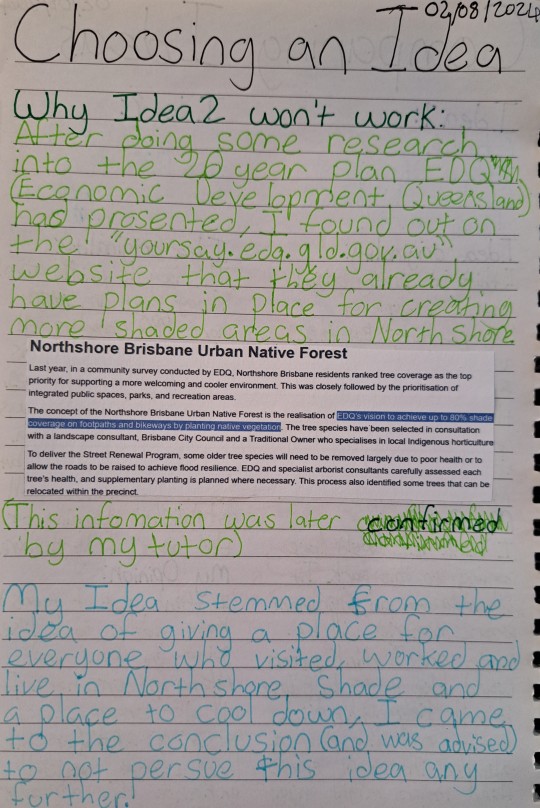 02/08/2024
Choosing an Idea
Why Idea 2 won't work:
After doing some research
into the 20 year plan EDQ
(Economic Development, Queensland)
had prosented, I found out on
the "yoursay.edq.qld.gov.au"
website that they already
have plans in place for creating
more shaded areas in North Shore
Northshore Brisbane Urban Native Forest
Last year, in a community survey conducted by EDQ, Northshore Brisbane residents ranked tree coverage as the top
priority for supporting a more welcoming and cooler environment. This was closely followed by the prioritisation of
integrated public spaces, parks, and recreation areas.
The concept of the Northshore Brisbane Urban Native Forest is the realisation of EDQ's vision to achieve up to 80% shade
coverage on footpaths and bikeways by planting native vegetation. The tree species have been selected in consultation
with a landscape consultant, Brisbane City Council and a Traditional Owner who specialises in local Indigenous horticulture
To deliver the Street Renewal Program, some older tree species will need to be removed largely due to poor health or to
allow the roads to be raised to achieve flood resilience. EDQ and specialist arborist consultants carefully assessed each
tree's health, and supplementary planting is planned where necessary. This process also identified some trees that can be
relocated within the precinct.
(This infomation was later confirmed
by my tutor)
My Idea stemmed from the
idea of giving a place for
everyone who visited, worked and
live in North shore, Shade and
a place to cool down, I came
to the conclusion (and was advised)
to not persue this idea any
further!